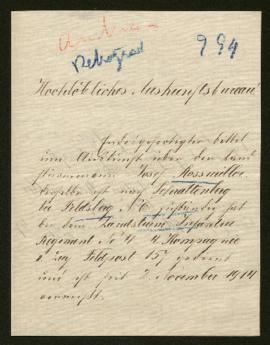 Petrograd
994
Hochlöbliches Auskunftsbureau
Endesgefertigter bittet
um Auskunft über den Land
sturmmann Josef Rossmüller
derselbe ist nach Schrattenberg
bei Feldsberg N.Ö. zuständig hat
bei dem Landsturm Infanterie
Regiment No 4 Kompagnie
Zug Feldpost 157 gedient
und ist seit 2. November 1914
vermißt.